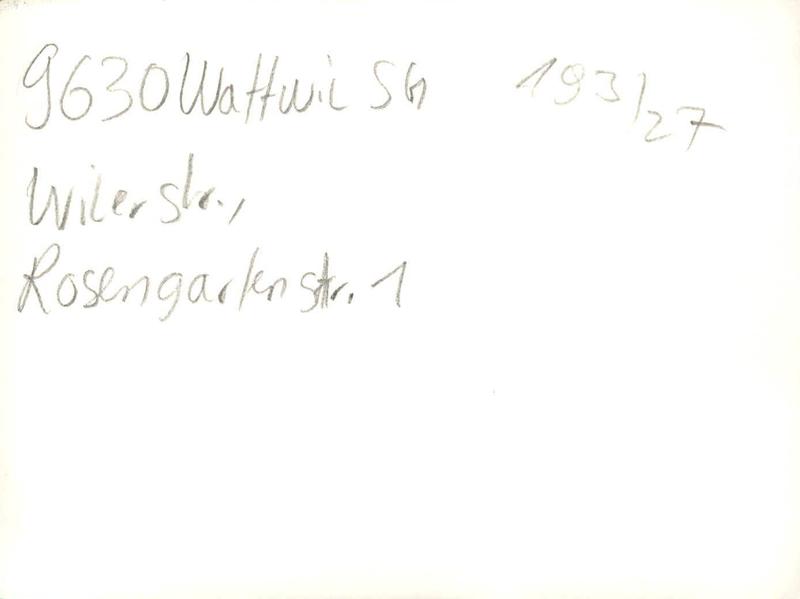 9630 Wattwil SG 193/27
Wilerstr.,
Rosengartenstr. 1